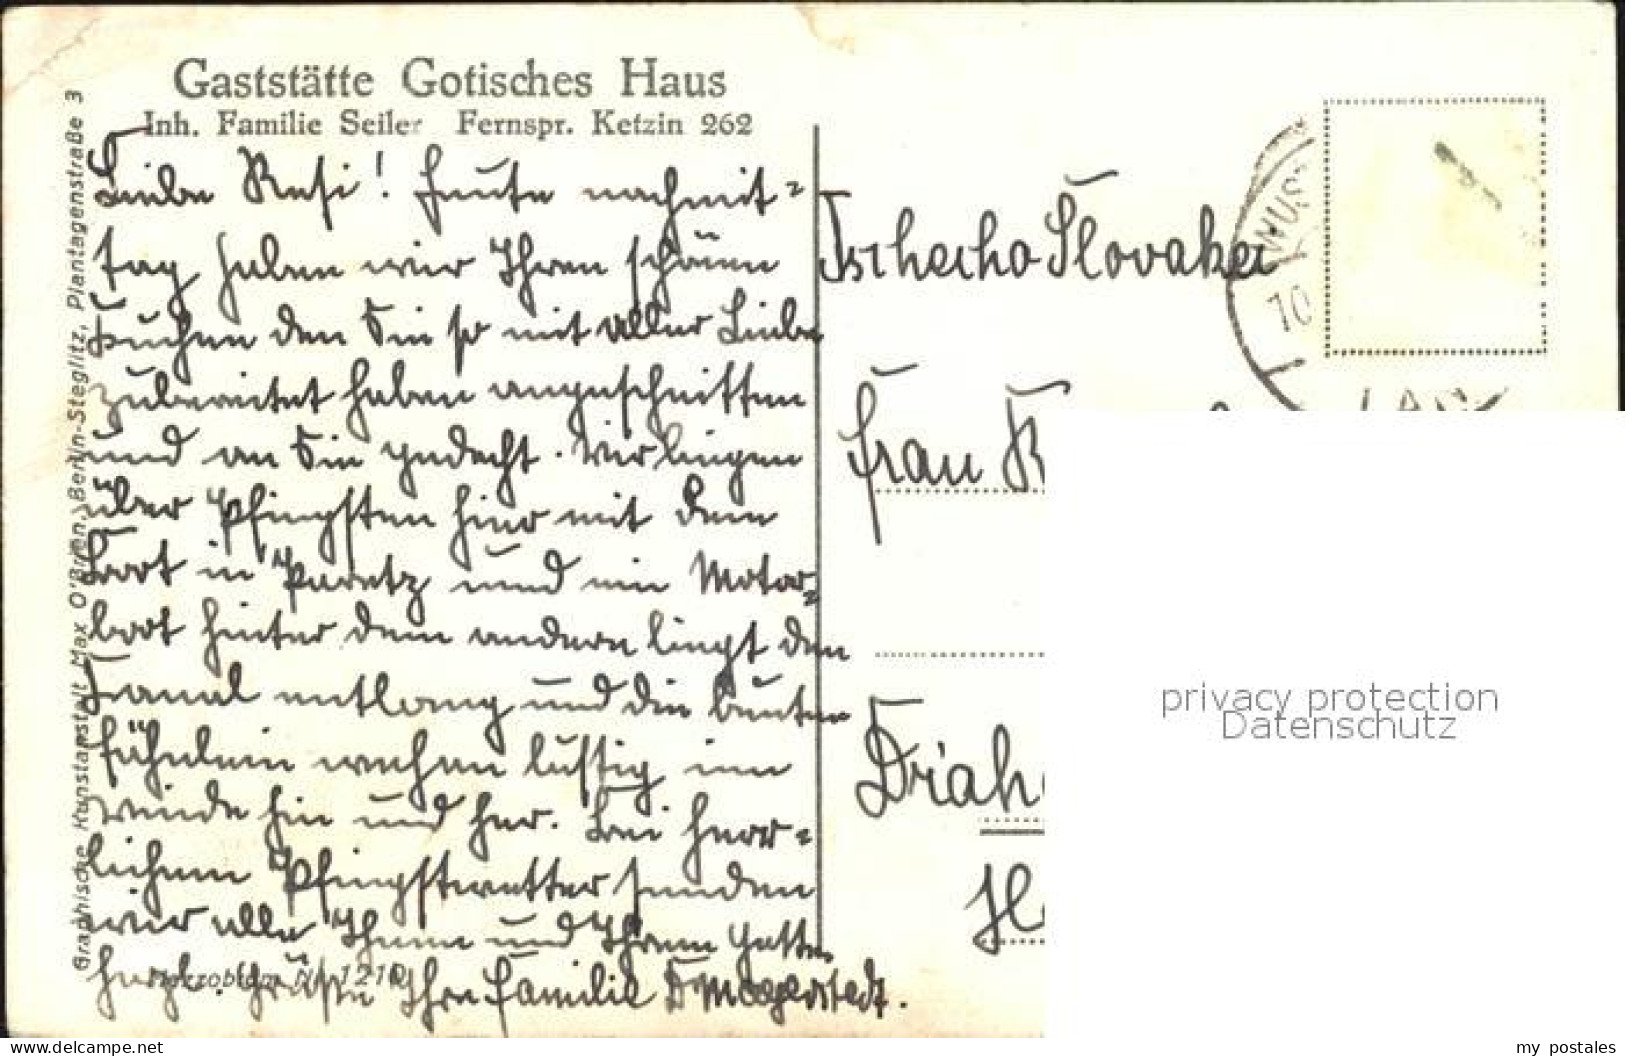 Gaststätte Gotisches Haus
Inh. Familie Seiler Fernspr. Ketzin 262
Liebe Resi! Heute nachmit=
tag haben wir Ihren schönen
Kuchen den Sie so mit aller Liebe
zubereitet haben angeschnitten
und an Sie gedacht. Wir liegen
über Pfingsten hier mit dem
Boot in Paretz und ein Motor=
boot hinter dem andern liegt den
Kanal entlang und die bunten
Fähnlein wehen lustig im
Winde hin und her. Bei herr=
lichem Pfingstwetter senden
wir alle Ihnen und Ihrem Gatten
herzl. Grüße Ihre Familie
Graphische Kunstanstalt Max O'Brien, Berlin-Steglitz, Plantagenstraße 3
1210
WUS
10
Tschecho Slovakei
Frau R
Drah
H
privacy protection
Datenschutz
www.delcampe.net
my postales